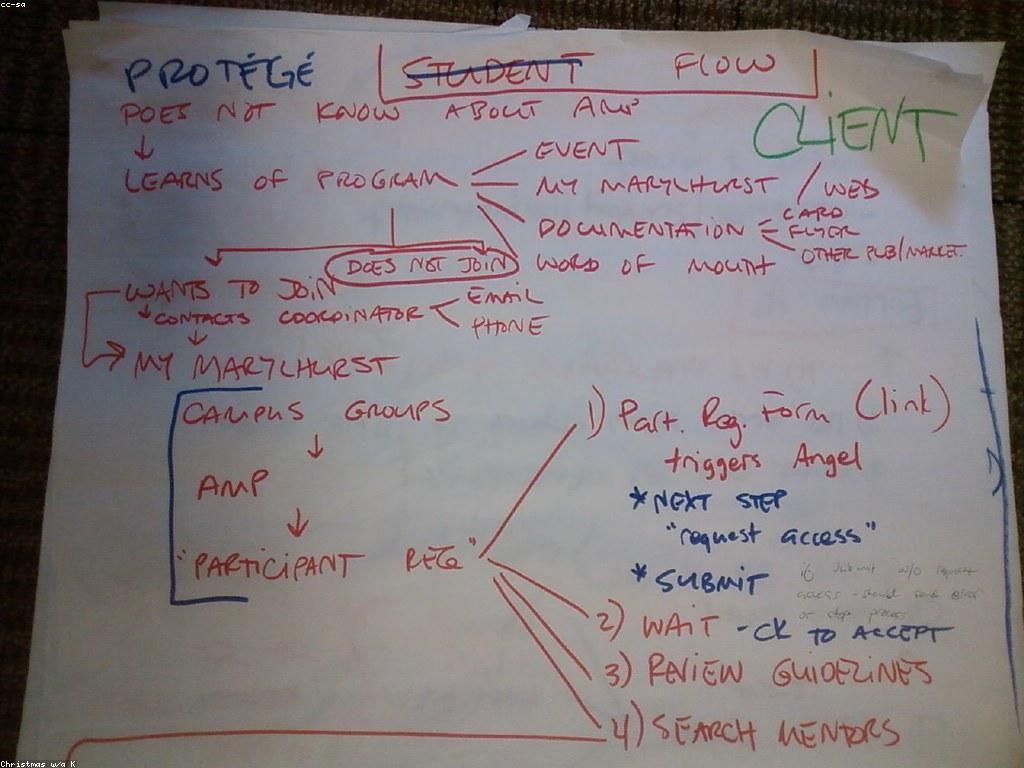 cc-sa
PROTÉGÉ STUDENT FLOW
DOES NOT KNOW ABOUT AMP
CLIENT
LEARNS OF PROGRAM
EVENT
MY MARYLHURST / WEB
DOCUMENTATION
CARD
FLYER
OTHER PUB/MARKET.
WORD OF MOUTH
DOES NOT JOIN
WANTS TO JOIN
CONTACTS COORDINATOR
EMAIL
PHONE
MY MARYLHURST
CAMPUS GROUPS
AMP
"PARTICIPANT REG"
1) Part. Reg. Form (link)
triggers Angel
* NEXT STEP
"request access"
* SUBMIT
if submit w/o request
access - should send error
or stop process
2) WAIT - CK TO ACCEPT
3) REVIEW GUIDELINES
4) SEARCH MENTORS
Christmas w/a K